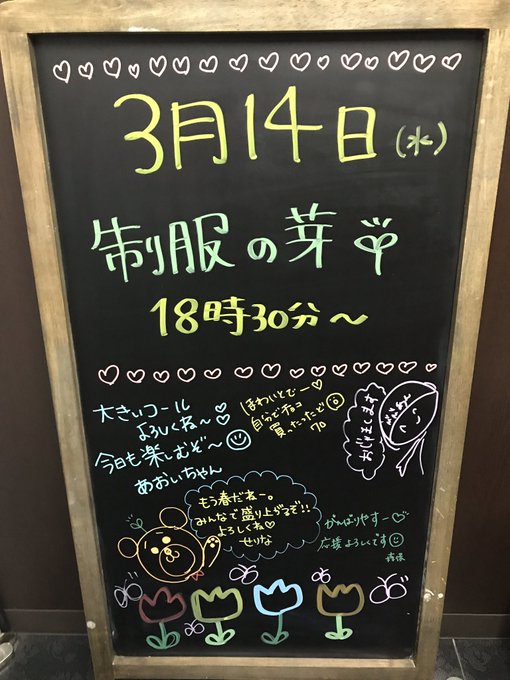 3月14日(水)
制服の芽
18時30分〜
大きいコール
よろしくね〜♡
今日も楽しむぞ〜
あおいちゃん
ほわいとでー♡
自分でチョコ
買ったったど
おじゃまします
もう春だねー。
みんなで盛り上がるぞ!!
よろしくね♡
せりな
がんばりやすー♡
応援よろしくです